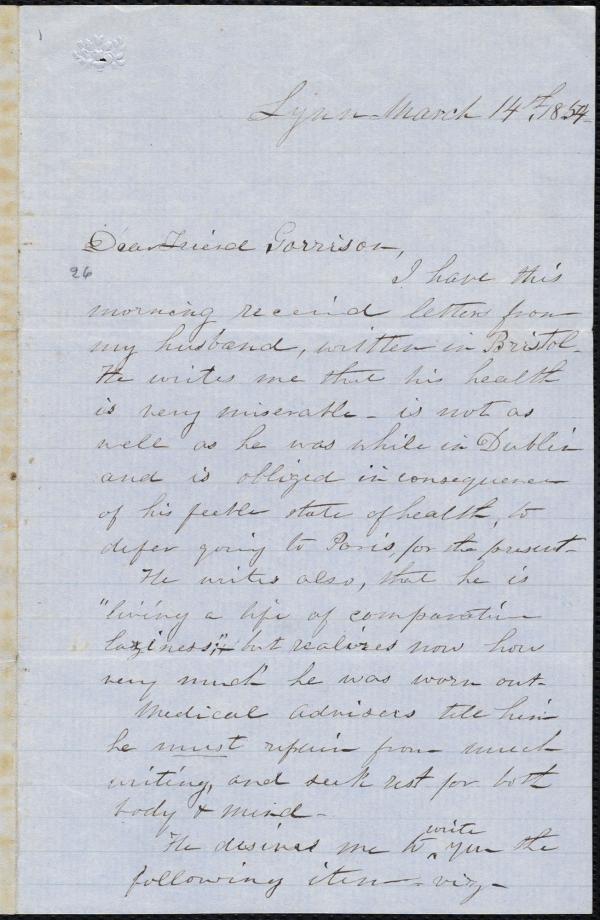 Lynn March 14th, 1854.
Dear Friend Garrison,
26
I have this
morning received letters from
my husband, written in Bristol.
He writes me that his health
is very miserable - is not as
well as he was while in Dublin
and is obliged in consequence
of his feeble state of health, to
defer going to Paris, for the present.
He writes also, that he is
"living a life of comparative
laziness", but realizes now how
very much he was worn out.
Medical advisers tell him
he must refrain from much
writing, and seek rest for both
body & mind.
He desires me to write you the
following item - viz -